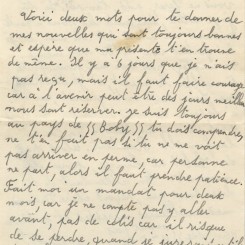 Voici deux mots pour te donner de
mes nouvelles qui sont toujours bonnes
et espère que ma présente t'en trouve
de même. Il y a 6 jours que je n'ais
pas reçu, mais il faut faire courage
car à l'avenir peut être des jours meille
nous sont réserver. je suis toujours
au pays de "Boby" tu dois comprendre,
ne t'en fait pas si tu ne me voit
pas arriver en perme, car personne
ne part, alors il faut prendre patience.
Fait moi un mandat pour deux
mois, car je ne compte pas y aller
avant, pas de colis car il risque
de se perdre, quand je